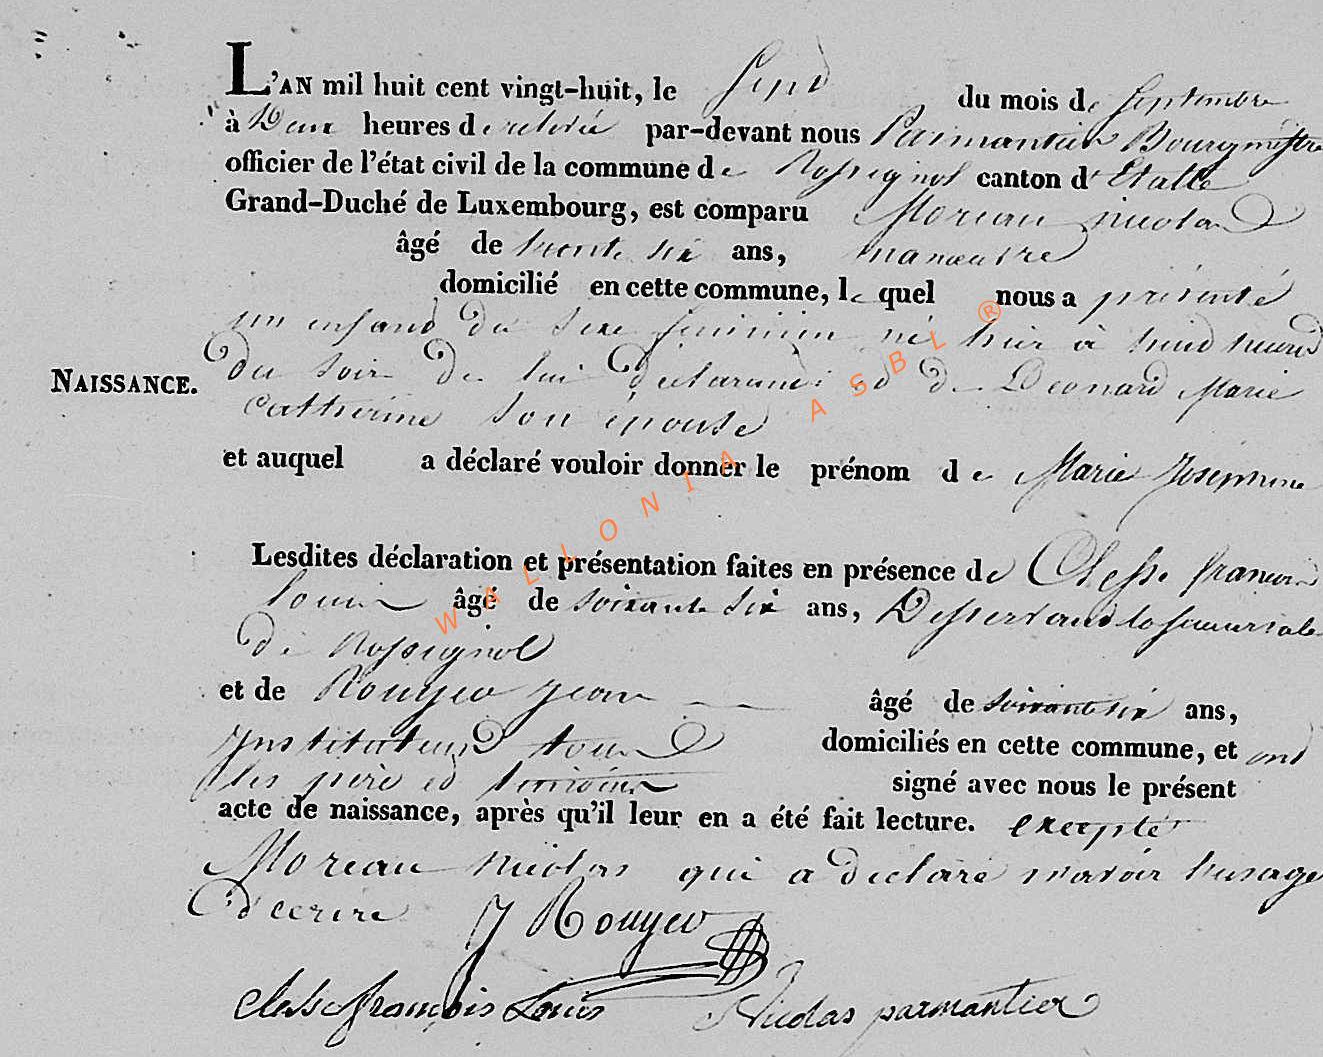 L'AN mil huit cent vingt-huit, le Sept du mois de Septembre
à Deux heures de relevée par-devant nous Parmantier Bourgmestre
officier de l'état civil de la commune de Rossignol canton d'Etalle
Grand-Duché de Luxembourg, est comparu Moreau nicolas
âgé de trente six ans, manœuvre
domicilié en cette commune, lequel nous a présenté
un enfant du sexe feminin né hier à huit heures
NAISSANCE.
du soir de lui déclarant et de Leonard Marie
catherine son épouse
et auquel a déclaré vouloir donner le prénom de Marie Josephine
Lesdites déclaration et présentation faites en présence de Clesse francois
louis âgé de soixante six ans, Desservant la succursale
de Rossignol
et de Rouyer jean âgé de soixante six ans,
Instituteur tous domiciliés en cette commune, et ont
les père et témoins signé avec nous le présent
acte de naissance, après qu'il leur en a été fait lecture. excepté
Moreau nicolas qui a déclaré n'avoir l'usage
d'ecrire J Rouyer
Clesse françois Louis Nicolas parmantier
WALLONIA ASBL ®